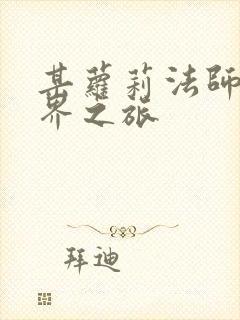 某蘿莉法師
界之旅
拜迪